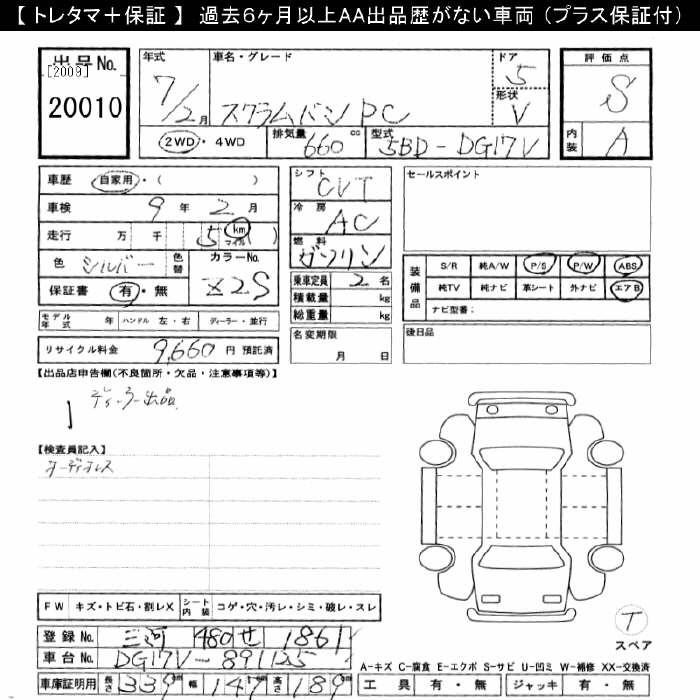 【 トレタマ＋保証 】 過去6ヶ月以上AA出品歴がない車両（プラス保証付）
出品No.
[2009]
20010
年式
7/2月
車名・グレード
スクラムバン PC
ドア
5
形状
V
評価点
S
内装
A
2WD・4WD
排気量
660 cc
型式
5BD-DG17V
車歴 自家用・( )
車検 9年 2月
走行 万 千 5 km マイル ( )
色 シルバー 色替
カラーNo.
Z2S
保証書 有・無
モデル年式 年 ハンドル 左・右 ディーラー・並行
リサイクル料金 9,660 円 預託済
シフト
CVT
冷房
AC
燃料
ガソリン
乗車定員 2名
積載量 kg
総重量 kg
名変期限
月 日
セールスポイント
装備品
S/R 純A/W P/S P/W ABS
純TV 純ナビ 革シート 外ナビ エアB
ナビ型番：
後日品
【出品店申告欄(不良箇所・欠品・注意事項等)】
ディーラー出品
【検査員記入】
オーディオレス
FW キズ・トビ石・割レX シート内装 コゲ・穴・汚レ・シミ・破レ・スレ
登録No. 三河 480 せ 1861
車台No. DG17V-891125
車庫証明用 長さ 339 幅 147 高さ 189
T
スペア
A-キズ C-腐食 E-エクボ S-サビ U-凹ミ W-補修 XX-交換済
工具 有・無 ジャッキ 有・無